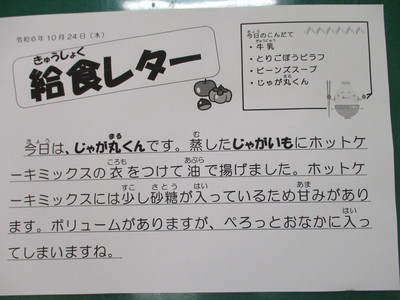 令和6年10月24日（木）
きゅうしょく
給食レター
きょう
今日のこんだて
ぎゅうにゅう
・牛乳
・とりごぼうピラフ
・ビーンズスープ
まる
・じゃが丸くん
きょう まる む
今日は、じゃが丸くんです。蒸したじゃがいもにホットケ
ころも あぶら あ
ーキミックスの衣をつけて油で揚げました。ホットケ
すこ さとう はい あま
ーキミックスには少し砂糖が入っているため甘みがあり
ます。ボリュームがありますが、ぺろっとおなかに入っ
はい
てしまいますね。